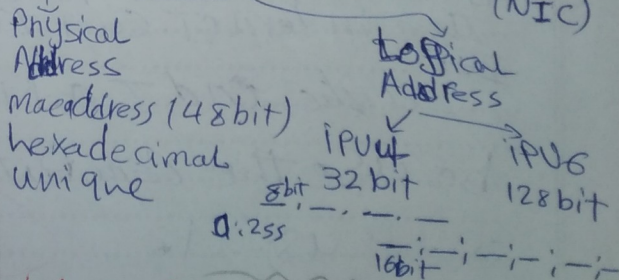 (NIC)
Physical
Address
Macaddress (48bit)
hexadecimal
unique
Logical
Address
iPV4
32 bit
iPV6
128bit
8bit
0:255
16bit